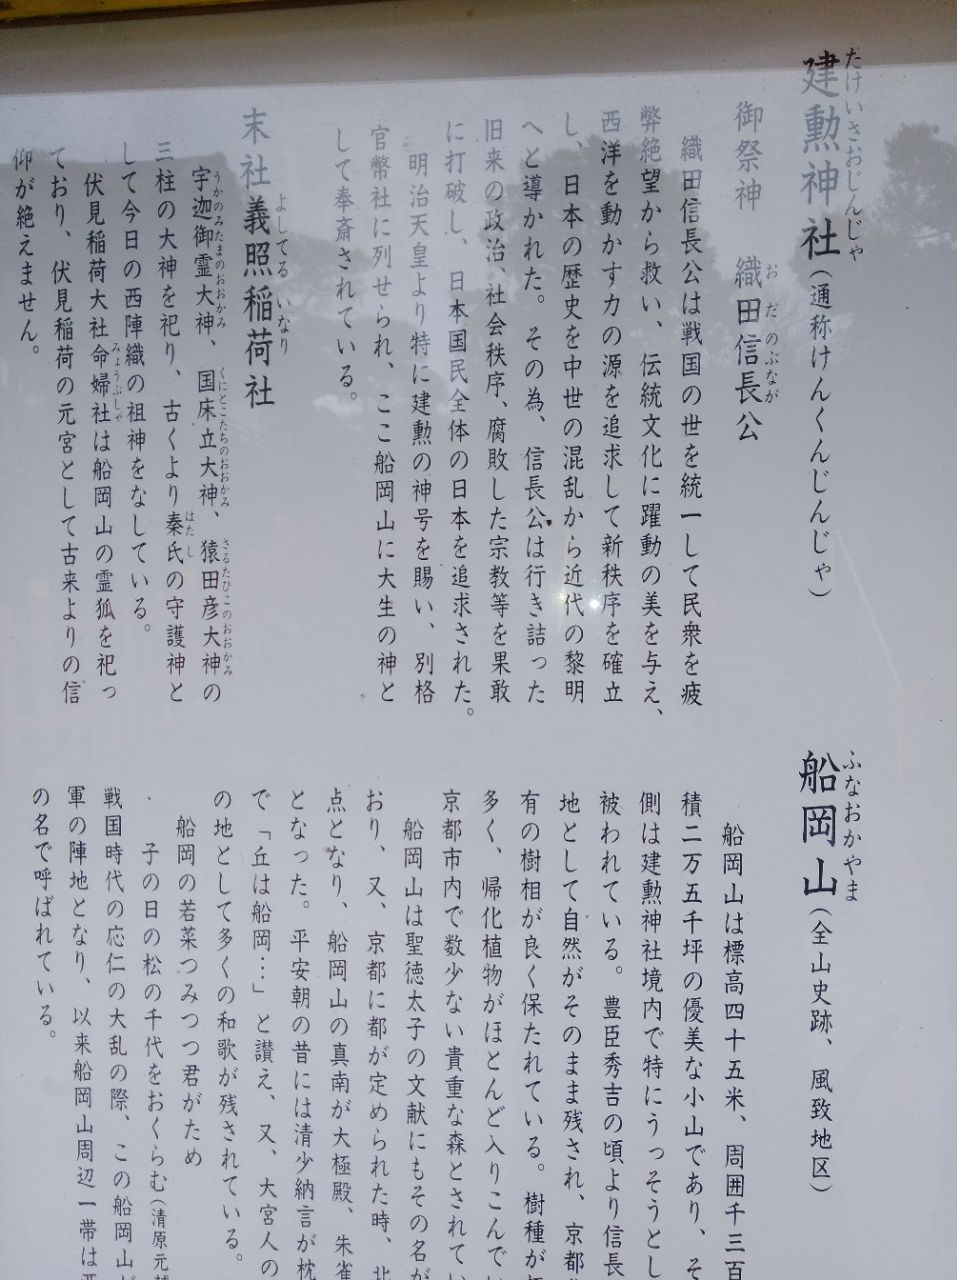 建勲神社(通称けんくんじんじゃ)
たけいさおじんじゃ
御祭神 織田信長公
おだのぶなが
織田信長公は戦国の世を統一して民衆を疲
弊絶望から救い、伝統文化に躍動の美を与え、
西洋を動かす力の源を追求して新秩序を確立
し、日本の歴史を中世の混乱から近代の黎明
へと導かれた。その為、信長公は行き詰った
旧来の政治、社会秩序、腐敗した宗教等を果敢
に打破し、日本国民全体の日本を追求された。
明治天皇より特に建勲の神号を賜い、別格
官幣社に列せられ、ここ船岡山に大生の神と
して奉斎されている。
末社義照稲荷社
よしてるいなり
宇迦御霊大神、国床立大神、猿田彦大神の
うかのみたまのおおかみ くにとこたちのおおかみ さるたひこのおおかみ
三柱の大神を祀り、古くより秦氏の守護神と
はたし
して今日の西陣織の祖神をなしている。
伏見稲荷大社命婦社は船岡山の霊狐を祀っ
みょうぶしゃ
ており、伏見稲荷の元宮として古来よりの信
仰が絶えません。
船岡山(全山史跡、風致地区)
ふなおかやま
船岡山は標高四十五米、周囲千三百
積二万五千坪の優美な小山であり、そ
側は建勲神社境内で特にうっそうとし
被われている。豊臣秀吉の頃より信長
地として自然がそのまま残され、京都
有の樹相が良く保たれている。樹種が
多く、帰化植物がほとんど入りこんで
京都市内で数少ない貴重な森とされて
船岡山は聖徳太子の文献にもその名が
おり、又、京都に都が定められた時、北
点となり、船岡山の真南が大極殿、朱雀
となった。平安朝の昔には清少納言が枕
で「丘は船岡…」と讃え、又、大宮人の
の地として多くの和歌が残されている。
船岡の若菜つみつつ君がため
子の日の松の千代をおくらむ(清原元輔
戦国時代の応仁の大乱の際、この船岡山が
軍の陣地となり、以来船岡山周辺一帯は西
の名で呼ばれている。